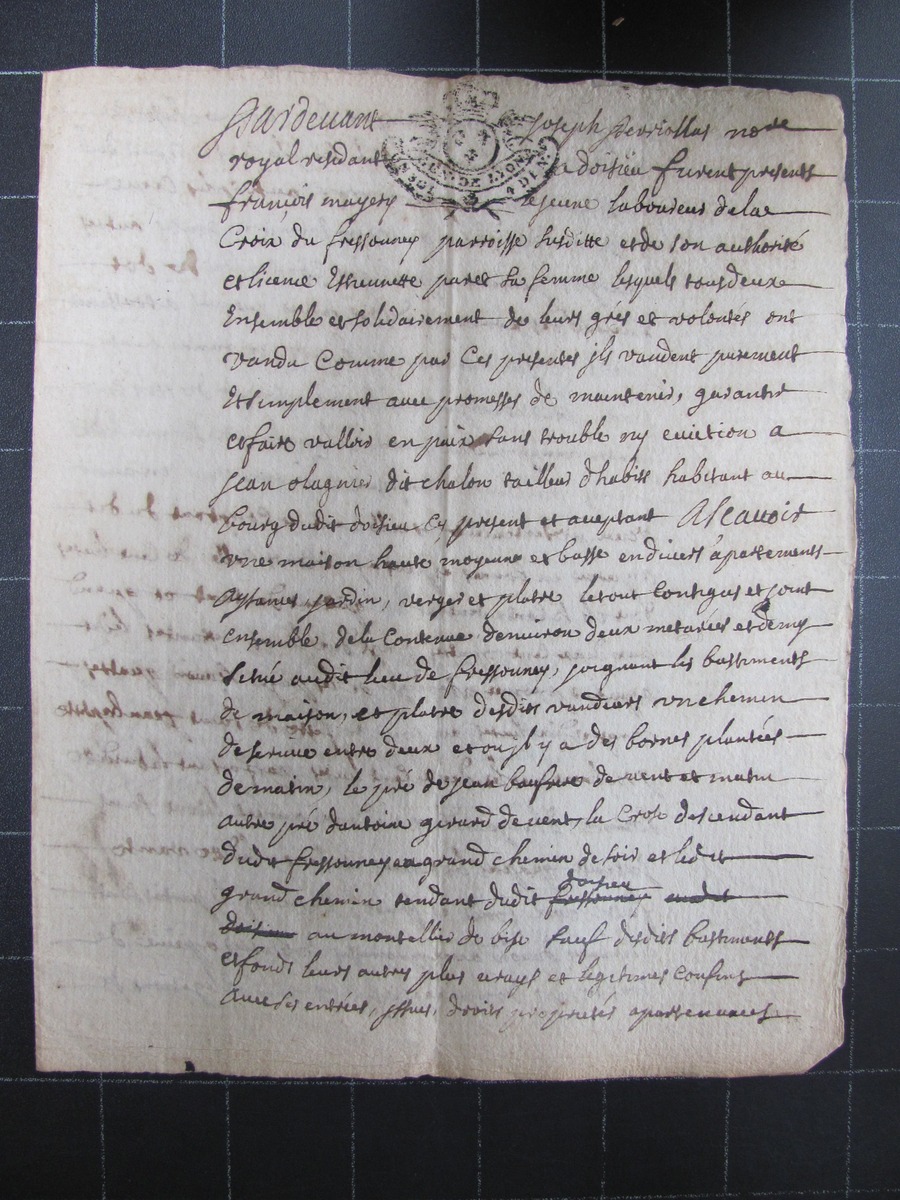 Pardevant Joseph Perriollas nore
royal residant a doisieu furent presents
françois mayery le jeune laboureur dela
Croix du fressouney parroisse susditte et de son authorité
et licence Estiennette paret sa femme lesquels tous deux
Ensemble et solidairement de leurs grés et volontés ont
vandu Comme par Ces presentes jls vandent purement
Et simplement avec promesses de maintenir, garantir
et faire valloir en paix sans trouble ny eviction a
Jean olagnier dit chalon tailleur d'habits habitant au
bourg dudit doisieu Cy present et acceptant Ascavoir
vne maison haute moyenne et basse en divers apartements
aysances jardin, verger et platre le tout Contigus et joint
ensemble de la Contenue denviron deux metarées et demy
Situé audit lieu de fressouney, joignant les bastiments
de maison, et platre desdits vandeurs vn chemin
de servue entre deux et ou jl y a des bornes plantées
de matin, le pré de jean de vent et matin
autre pré dantoine girard de vent, la Crose descendant
dudit fressouney au grand chemin de soir et ledit
grand chemin tendant dudit doisieu
au montellier de bise sauf desdits bastiments
et fonds leurs autres plus vrays et legitimes Confins
Avec ses entrées, jssues, droits proprietés apartenances